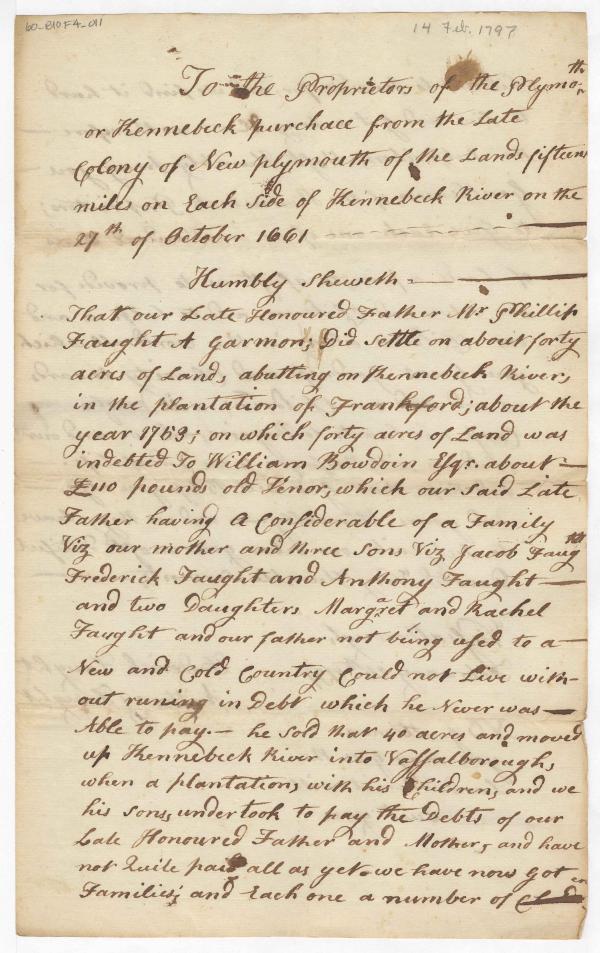 60-B10F4-011
14 Feb. 1797
To the Proprietors of the Plymoth
or Kennebeck purchace from the Late
Colony of New plymouth of the Lands fifteen
miles on Each Side of Kennebeck River on the
27th of October 1661
Humbly Sheweth
That our Late Honoured Father Mr Phillip
Faught A Garmon; Did Settle on about forty
acres of Land, abutting on Kennebeck River,
in the plantation of Frankford; about the
year 1763; on which forty acres of Land was
indebted To William Bowdoin Esqr. about
£110 pounds old Tenor, which our Said Late
Father having A Considerable of a Family
Viz our mother and three Sons Viz Jacob Faught
Frederick Faught and Anthony Faught
and two Daughters Margaret and Rachel
Faught and our father not being used to a
New and Cold Country Could not Live with-
out runing in Debt which he Never was
Able to pay.— he Sold that 40 acres and moved
up Kennebeck River into Vassalborough,
when a plantation, with his Children, and we
his Sons, undertook to pay the Debts of our
Late Honoured Father and Mother, and have
not Quite paid all as yet. we have now got
Families; and Each one a number of